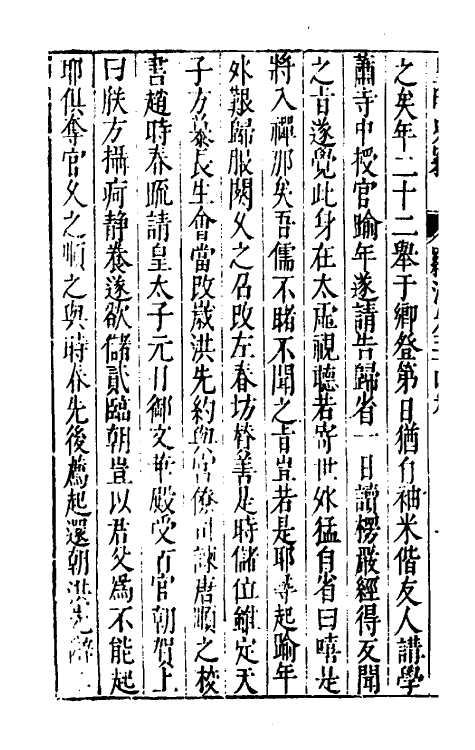 之矣年二十二舉于鄉登第日猶自袖米偕友人講學
蕭寺中授官踰年遂請告歸省一日讀楞嚴經得反聞
之旨遂覺此身在太虛視聽若寄世外猛自省曰嘻是
將入禪那矣吾儒不睹不聞之旨豈若是耶尋起踰年
外艱歸服闋久之召改左春坊贊善是時儲位雖定天
子方慕長生會當改歲洪先約與官僚司諫唐順之校
書趙時春疏請皇太子元日御文華殿受百官朝賀上
曰朕方攝疴靜養遂欲儲貳臨朝豈以君父為不能起
耶俱奪官久之順之與時春先後薦起還朝洪先辭